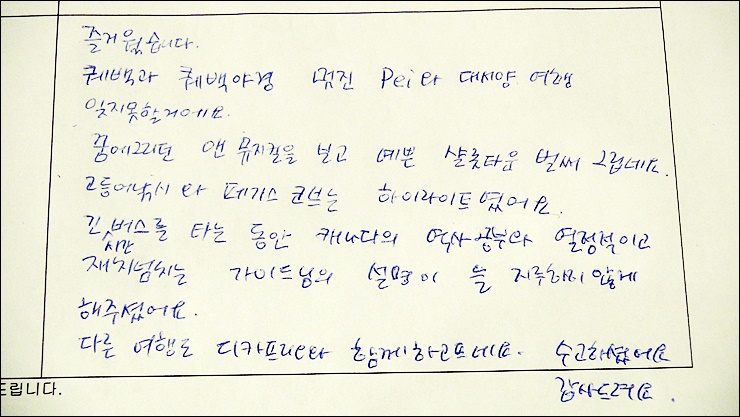 즐거웠습니다.
퀘백과 퀘백야경 멋진 Pei와 대서양 여행
잊지못할거에요.
꿈에그리던 앤 뮤지컬을 보고 예쁜 샬롯타운 벌써 그립네요.
고등어낚시와 페기스코브는 하이라이트였어요.
긴시간 버스를 타는 동안 캐나다의 역사공부와 열정적이고
재치넘치는 가이드님의 설명이 지루하지않게
해주셨어요.
다른 여행도 디카프리와 함께하고프네요. 수고하셨어요
감사드려요.
드립니다.